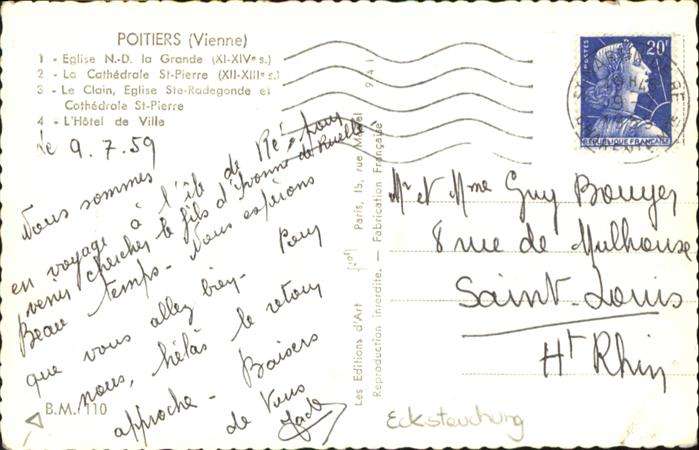 POITIERS (Vienne)
1 - Eglise N.-D. la Grande (XI-XIVe s.)
2 - La Cathédrale St-Pierre (XII-XIIIe s.)
3 - Le Clain, Eglise Ste-Radegonde et
Cathédrale St-Pierre
4 - L'Hôtel de Ville
le 9.7.59
Nous sommes
en voyage à l'île de Ré, pour
venir chercher le fils d'Yvonne de Ruelle
Beau temps - Nous espérons
que vous allez bien. Pour
nous, hélas le retour
approche - Baisers
de Vous
B.M./110
Les Editions d'Art
Paris, 15, rue Martel
Reproduction interdite. - Fabrication Française
941
POSTES
20F
REPUBLIQUE FRANÇAISE
Mr et Mme Guy Bouyer
8 rue de Mulhouse
Saint-Louis
Ht Rhin
Eckstauchung